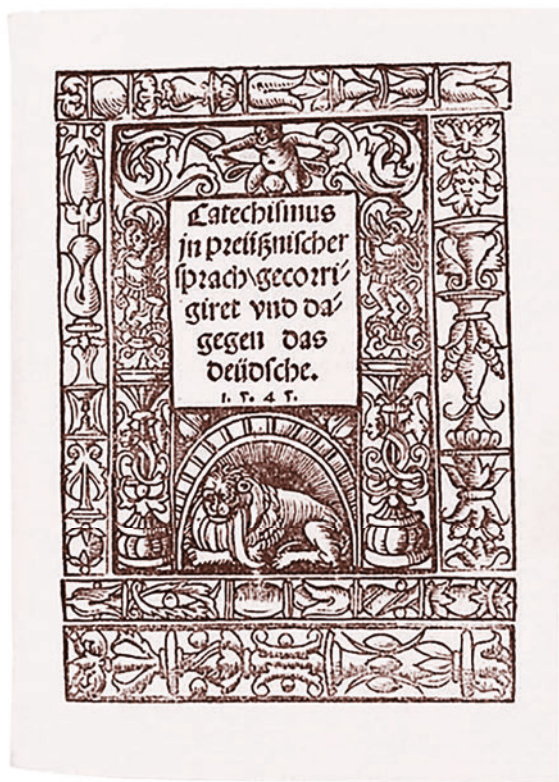 Catechismus
jn preüßnischer
sprach\gecorri⸗
giret vnd da⸗
gegen das
deüdsche.
1. 5. 4 5.